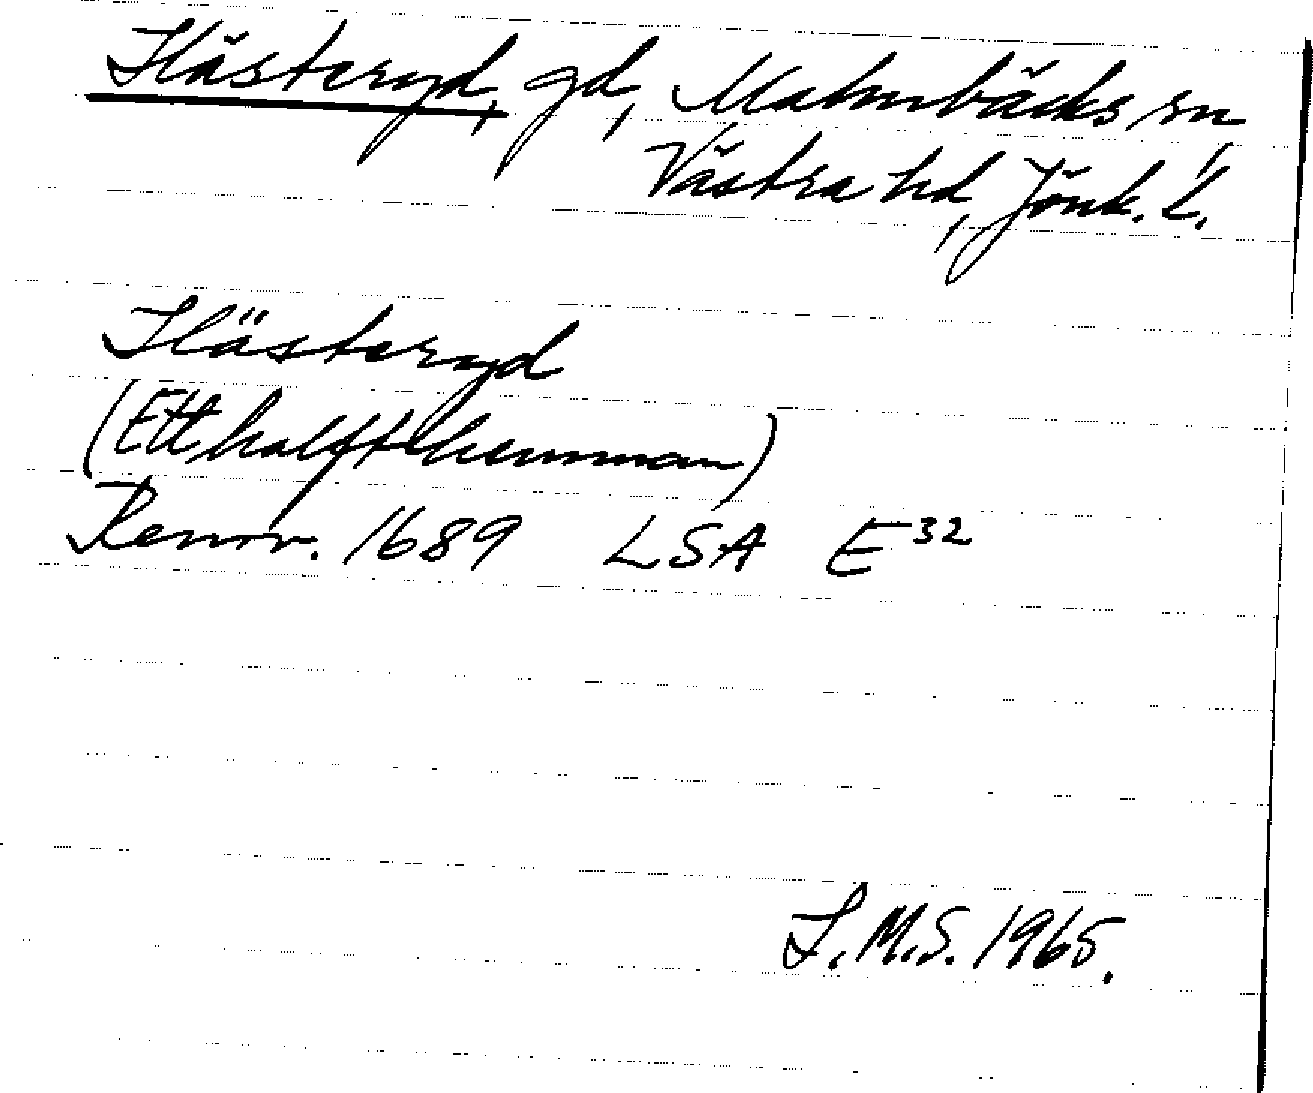 Hästeryd, gd, Malmbäcks sn
Västra hd, Jönk. l.
Hästeryd
(Ett halft hemman)
Renov. 1689 LSA E32
I.M.S. 1965.